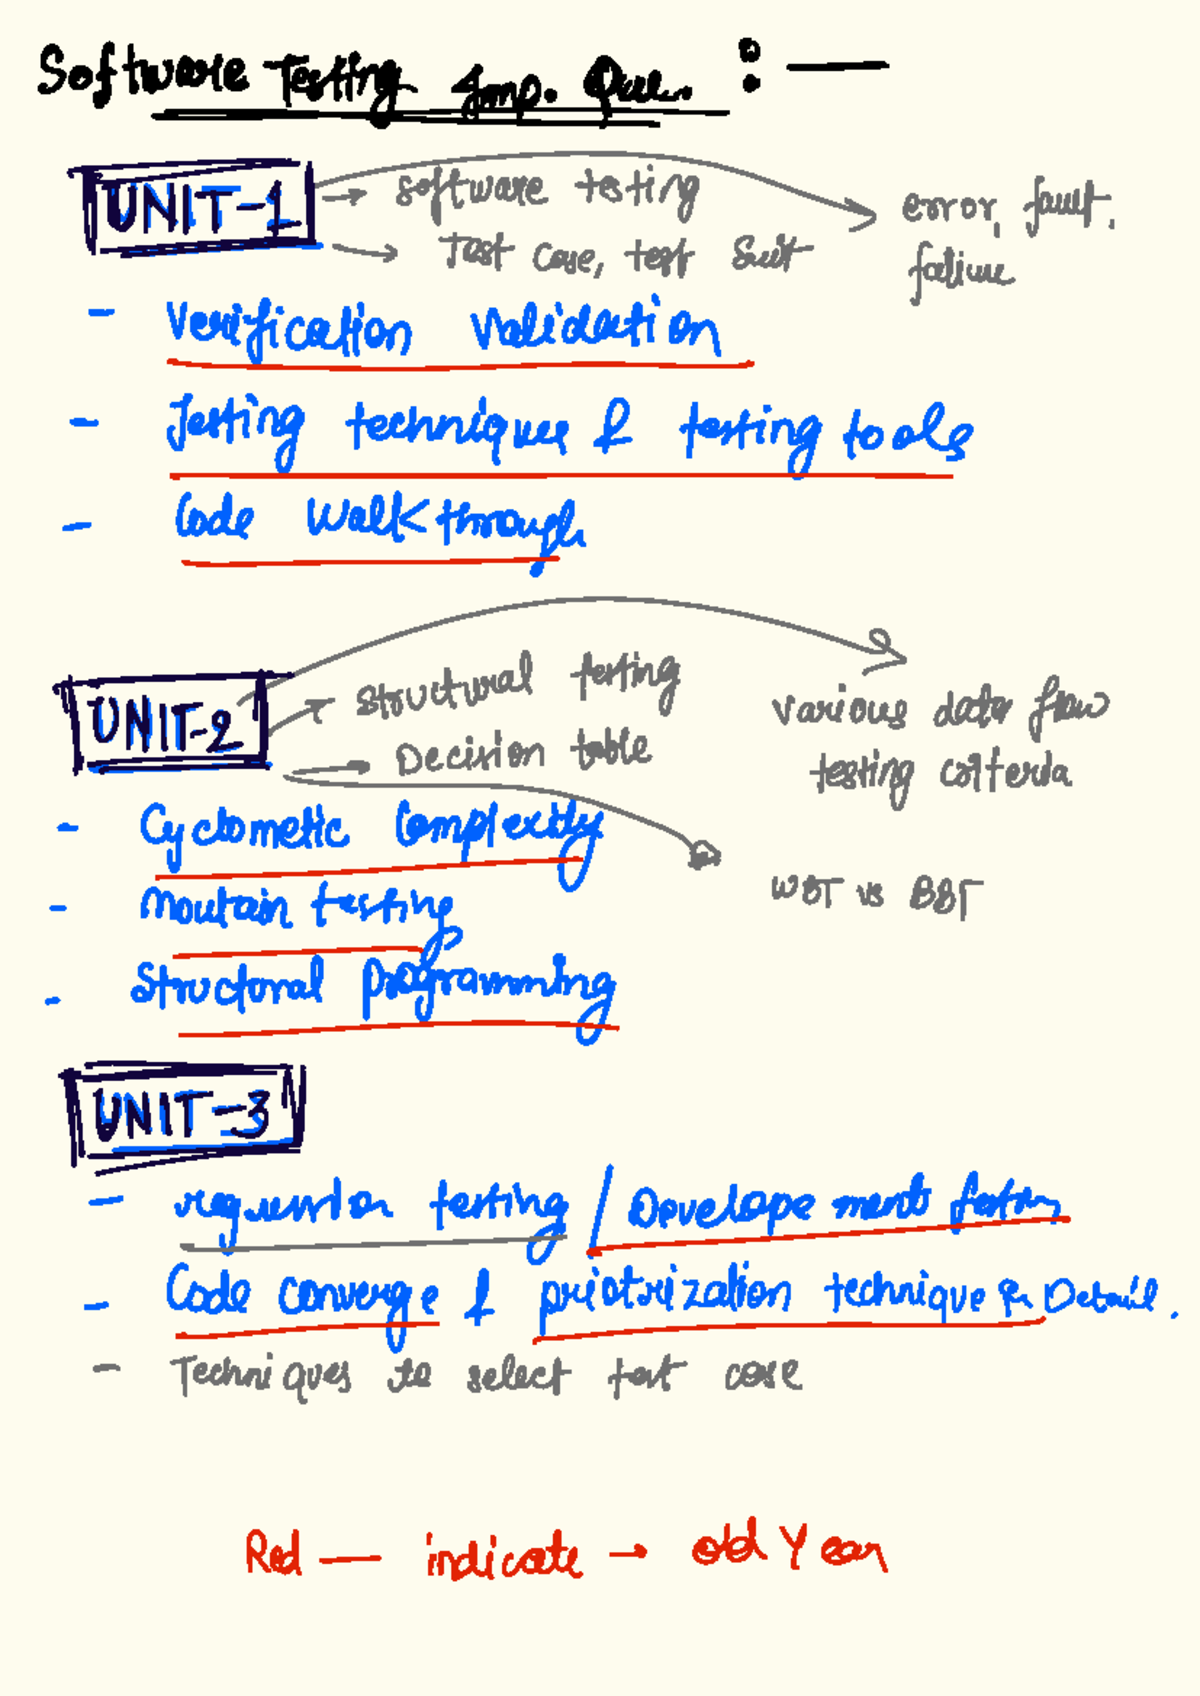 Software Testing Imp. Que. : —
UNIT-1
→ software testing
→ Test Case, test Suit
error, fault,
faliure
- Verification Validation
- Testing techniques & testing tools
- Code Walkthrough
UNIT-2
→ Structural testing
→ Decision table
Various data flow
testing criteria
WBT vs BBT
- Cyclometic Complexity
- Moutain testing
- Structoral programming
UNIT-3
- regression testing / Develope ments testing
- Code converge & priotrization technique in Detail.
- Techniques to select test case
Red — indicate → old Year